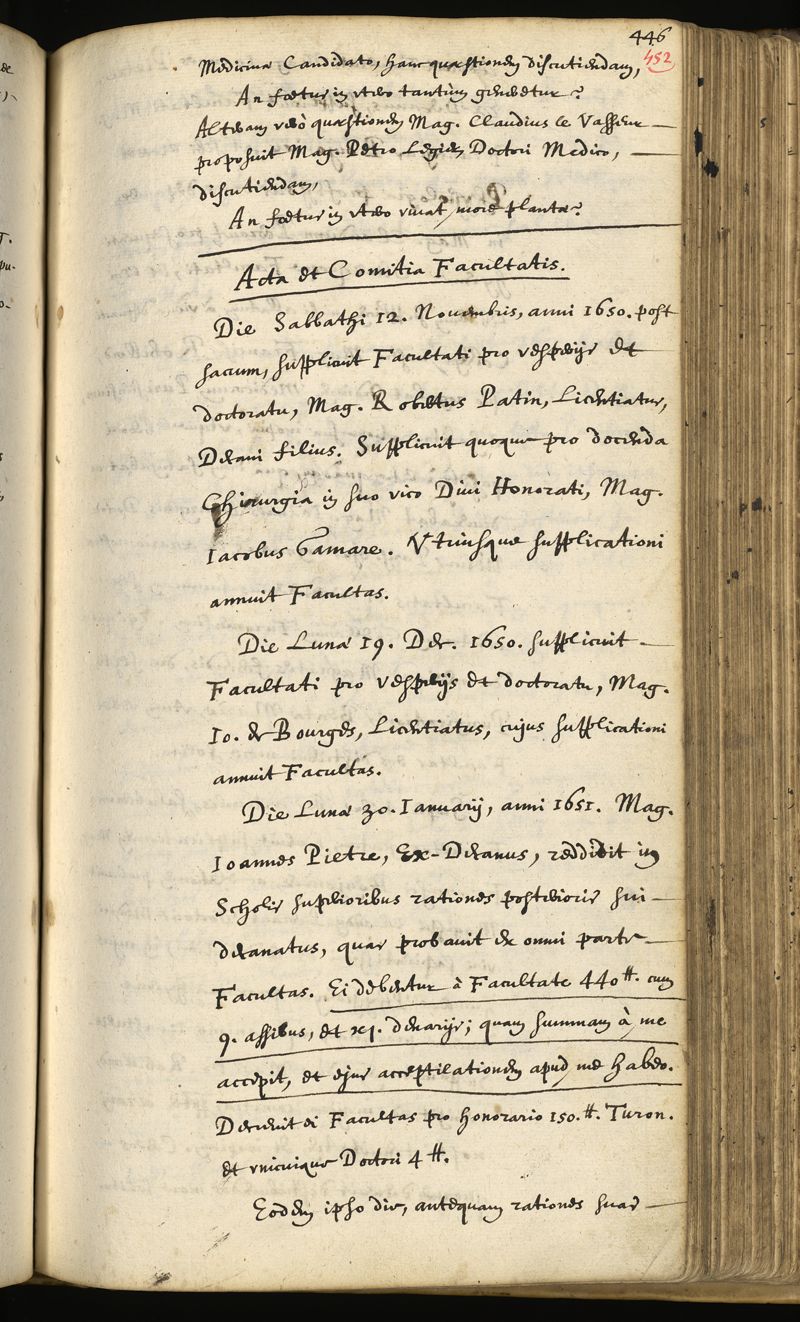 446
452
Medicinæ Candidato, hanc quæstionem discutiendam,
An fœtus in vtero tantùm generetur?
Alteram verò quæstionem Mag. Claudius le Vasseur
proposuit Mag. Petro Legier, Doctori Medico,
discutiendam,
An fœtus in vtero vivat more plantæ?
Acta et Comitia Facultatis.
Die Sabbathi 12. Novembris, anni 1650. post
sacrum, supplicuit Facultati pro vesperijs et
doctoratu, Mag. Robertus Patin, Licentiatus,
Decani filius. Supplicuit quoque pro docenda
Chirurgia in suo vico Divi Honorati, Mag.
Iacobus Gamare. Vtriusque supplicationi
annuit Facultas.
Die Lunæ 19. Dec. 1650. supplicuit
Facultati pro vesperijs et doctoratu, Mag.
Io. de Bourges, Licentiatus, cujus supplicationi
annuit Facultas.
Die Lunæ 30. Ianuarij, anni 1651. Mag.
Ioannes Pietre, Ex-Decanus, reddidit in
Scholis superioribus rationes posterioris sui
decanatus, quas probauit ex omni parte
Facultas. Ei debentur à Facultate 440 ₶. cum
9. assibus, et xj. denarijs; quam summam à me
accepit, et ejus acceptilationem apud me habeo.
Decreuit ei Facultas pro honorario 150.₶. Turon.
et vnicuique Doctori 4 ₶.
Eodem ipso die, antequam rationes suas